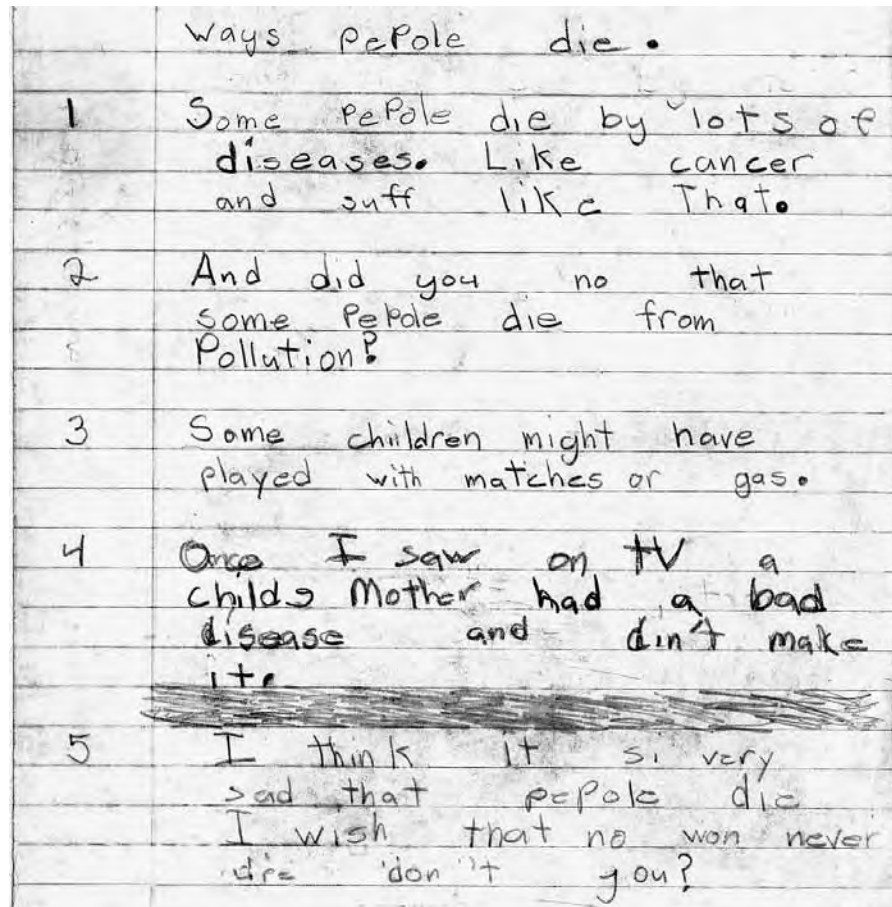 ways pePole die.
1 Some pePole die by lots of
diseases. Like cancer
and suff like That.
2 And did you no that
some PePole die from
Pollution?
3 Some chiildren might have
played with matches or gas.
4 Once I saw on tV a
childs Mother had a bad
disease and din't make
it.
5 I think it si very
sad that pePole die
I wish that no won never
die don't you?